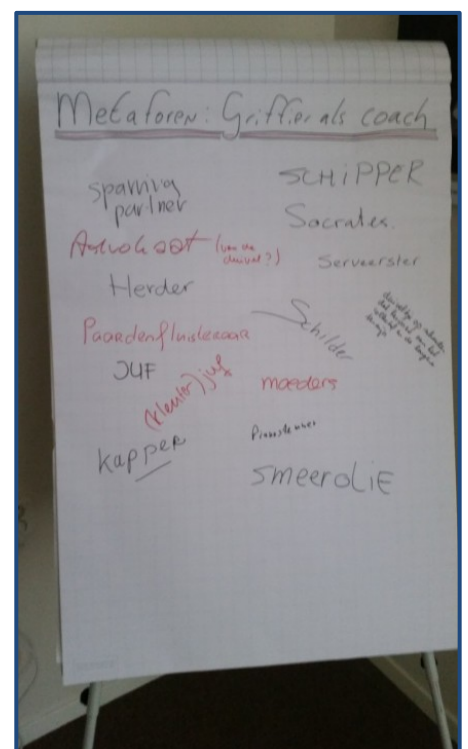 Metaforen: Griffier als coach
sparring
partner
SCHIPPER
Socrates.
Advokaat (van de
duivel?)
Serveerster
Herder
Paardenfluisteraar
Schilder
JUF
(kleuter) juf
moeders
kapper
SMEEROLIE